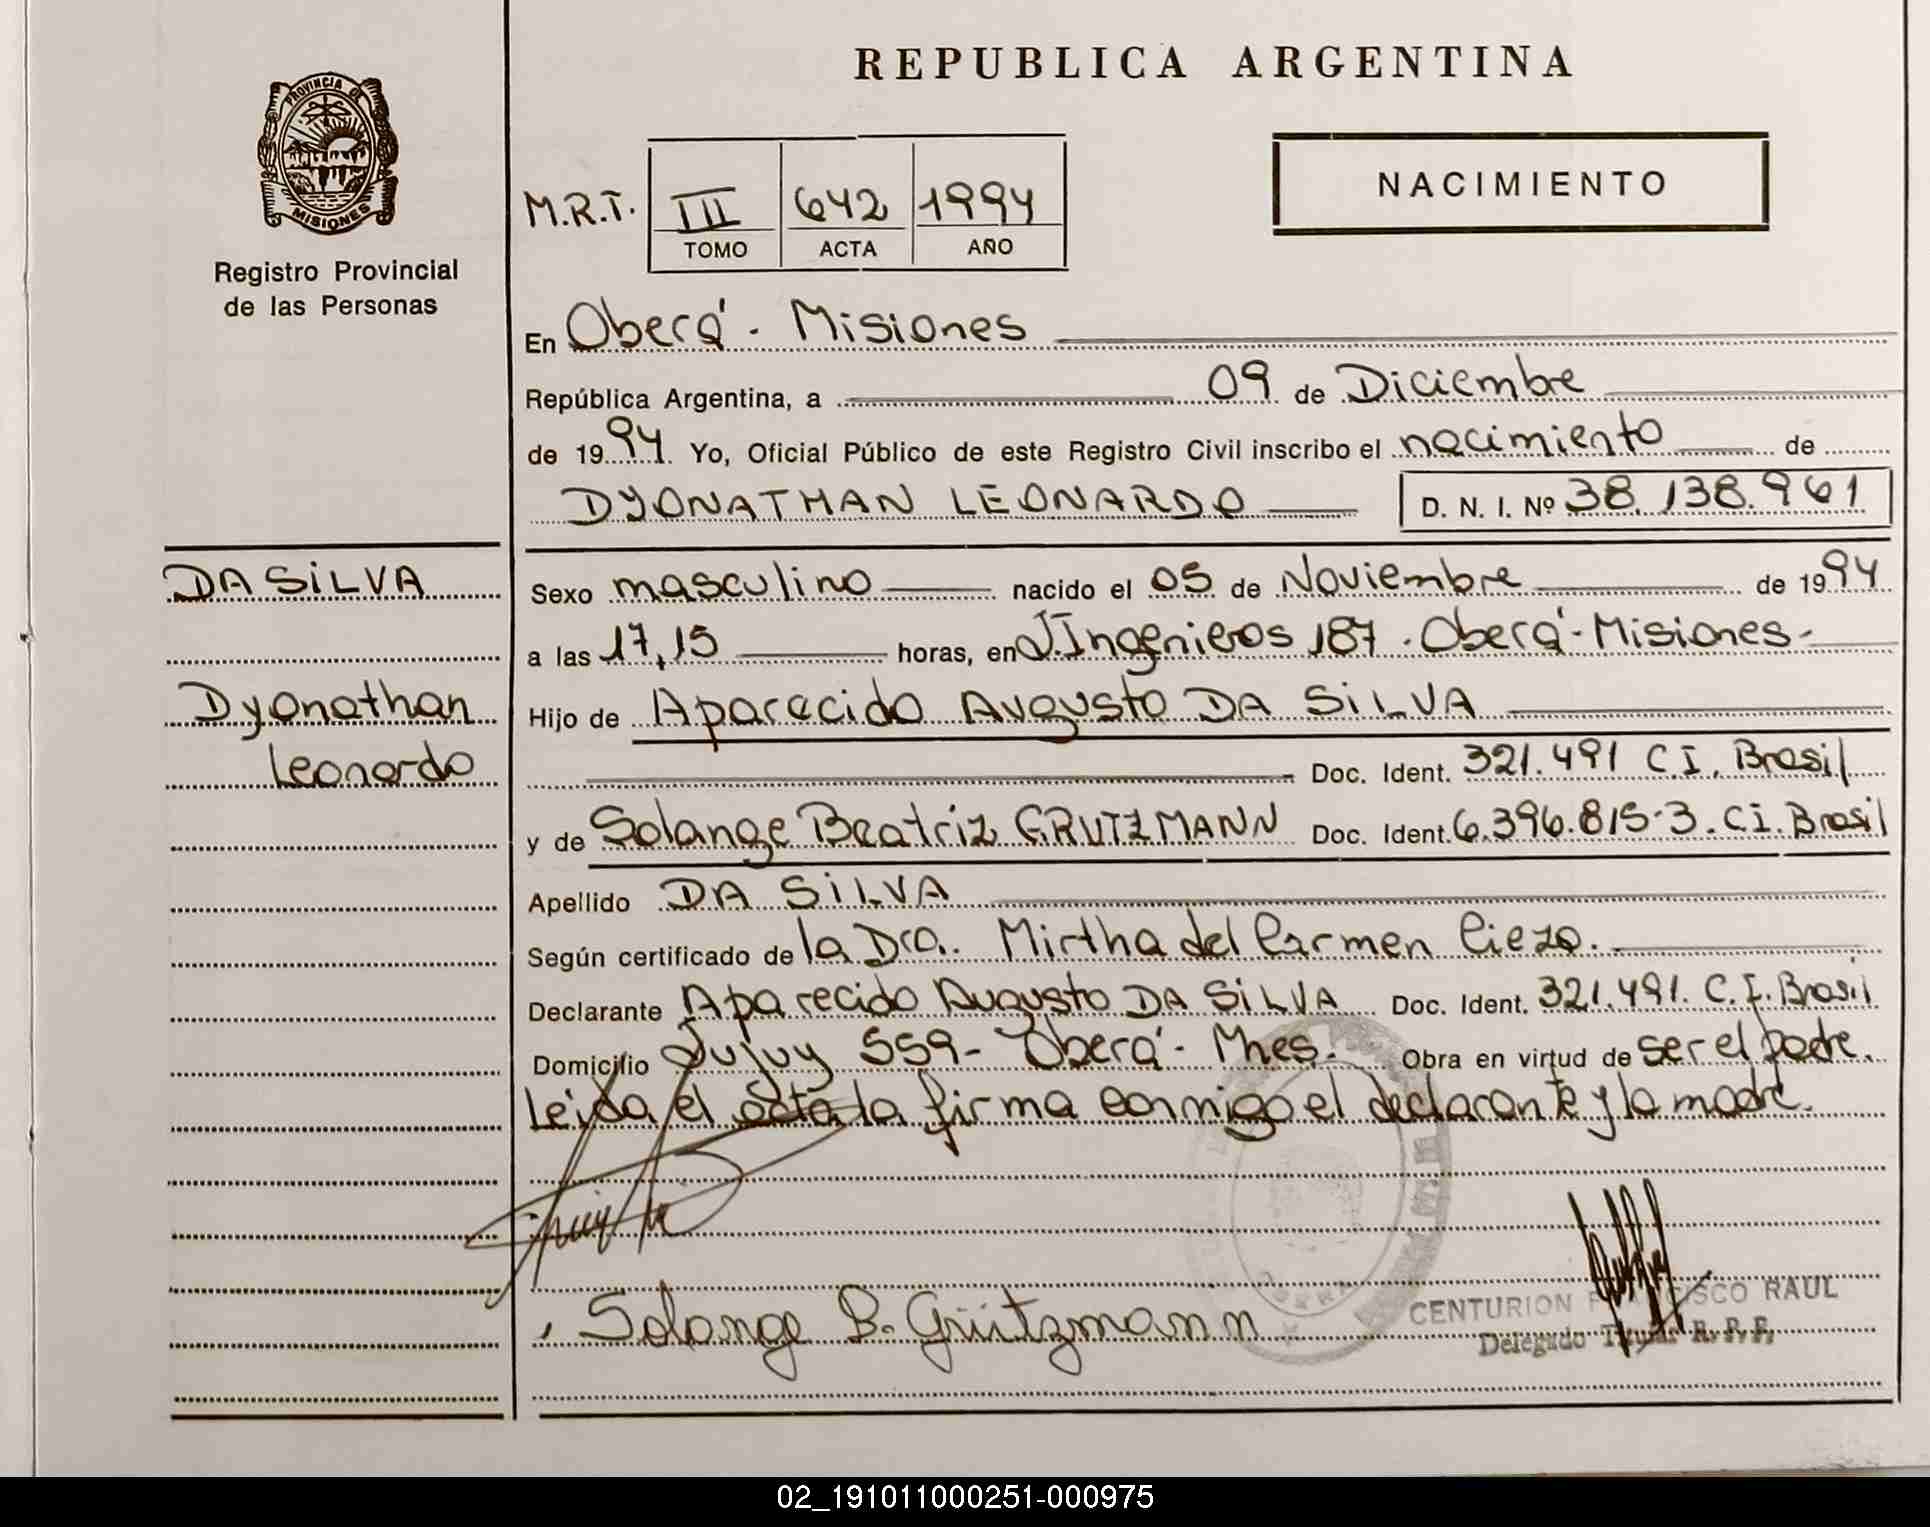 PROVINCIA DE
MISIONES
Registro Provincial
de las Personas
REPUBLICA ARGENTINA
NACIMIENTO
M.R.T. III 642 1994
TOMO ACTA AÑO
En Oberá - Misiones
República Argentina, a 09 de Diciembre
de 1994 Yo, Oficial Público de este Registro Civil inscribo el nacimiento de
DYONATHAN LEONARDO D. N. I. Nº 38.138.961
DA SILVA
Dyonathan
Leonardo
Sexo masculino nacido el 05 de Noviembre de 1994
a las 17,15 horas, en J. Ingenieros 187 - Oberá - Misiones -
Hijo de Aparecido Augusto DA SILVA
Doc. Ident. 321.491 C.I. Brasil
y de Solange Beatriz GRUTZMANN Doc. Ident. 6.396.815-3. C.I. Brasil
Apellido DA SILVA
Según certificado de la Dra. Mirtha del Carmen Cieza.
Declarante Aparecido Augusto DA SILVA Doc. Ident. 321.491. C.I. Brasil
Domicilio Jujuy 559 - Oberá - Mnes. Obra en virtud de ser el padre.
Leida el acta la firma conmigo el declarante y la madre.
Solange B. Grützmann
OBERA
CENTURION FRANCISCO RAUL
Delegado Titular R. P. P.
02_191011000251-000975